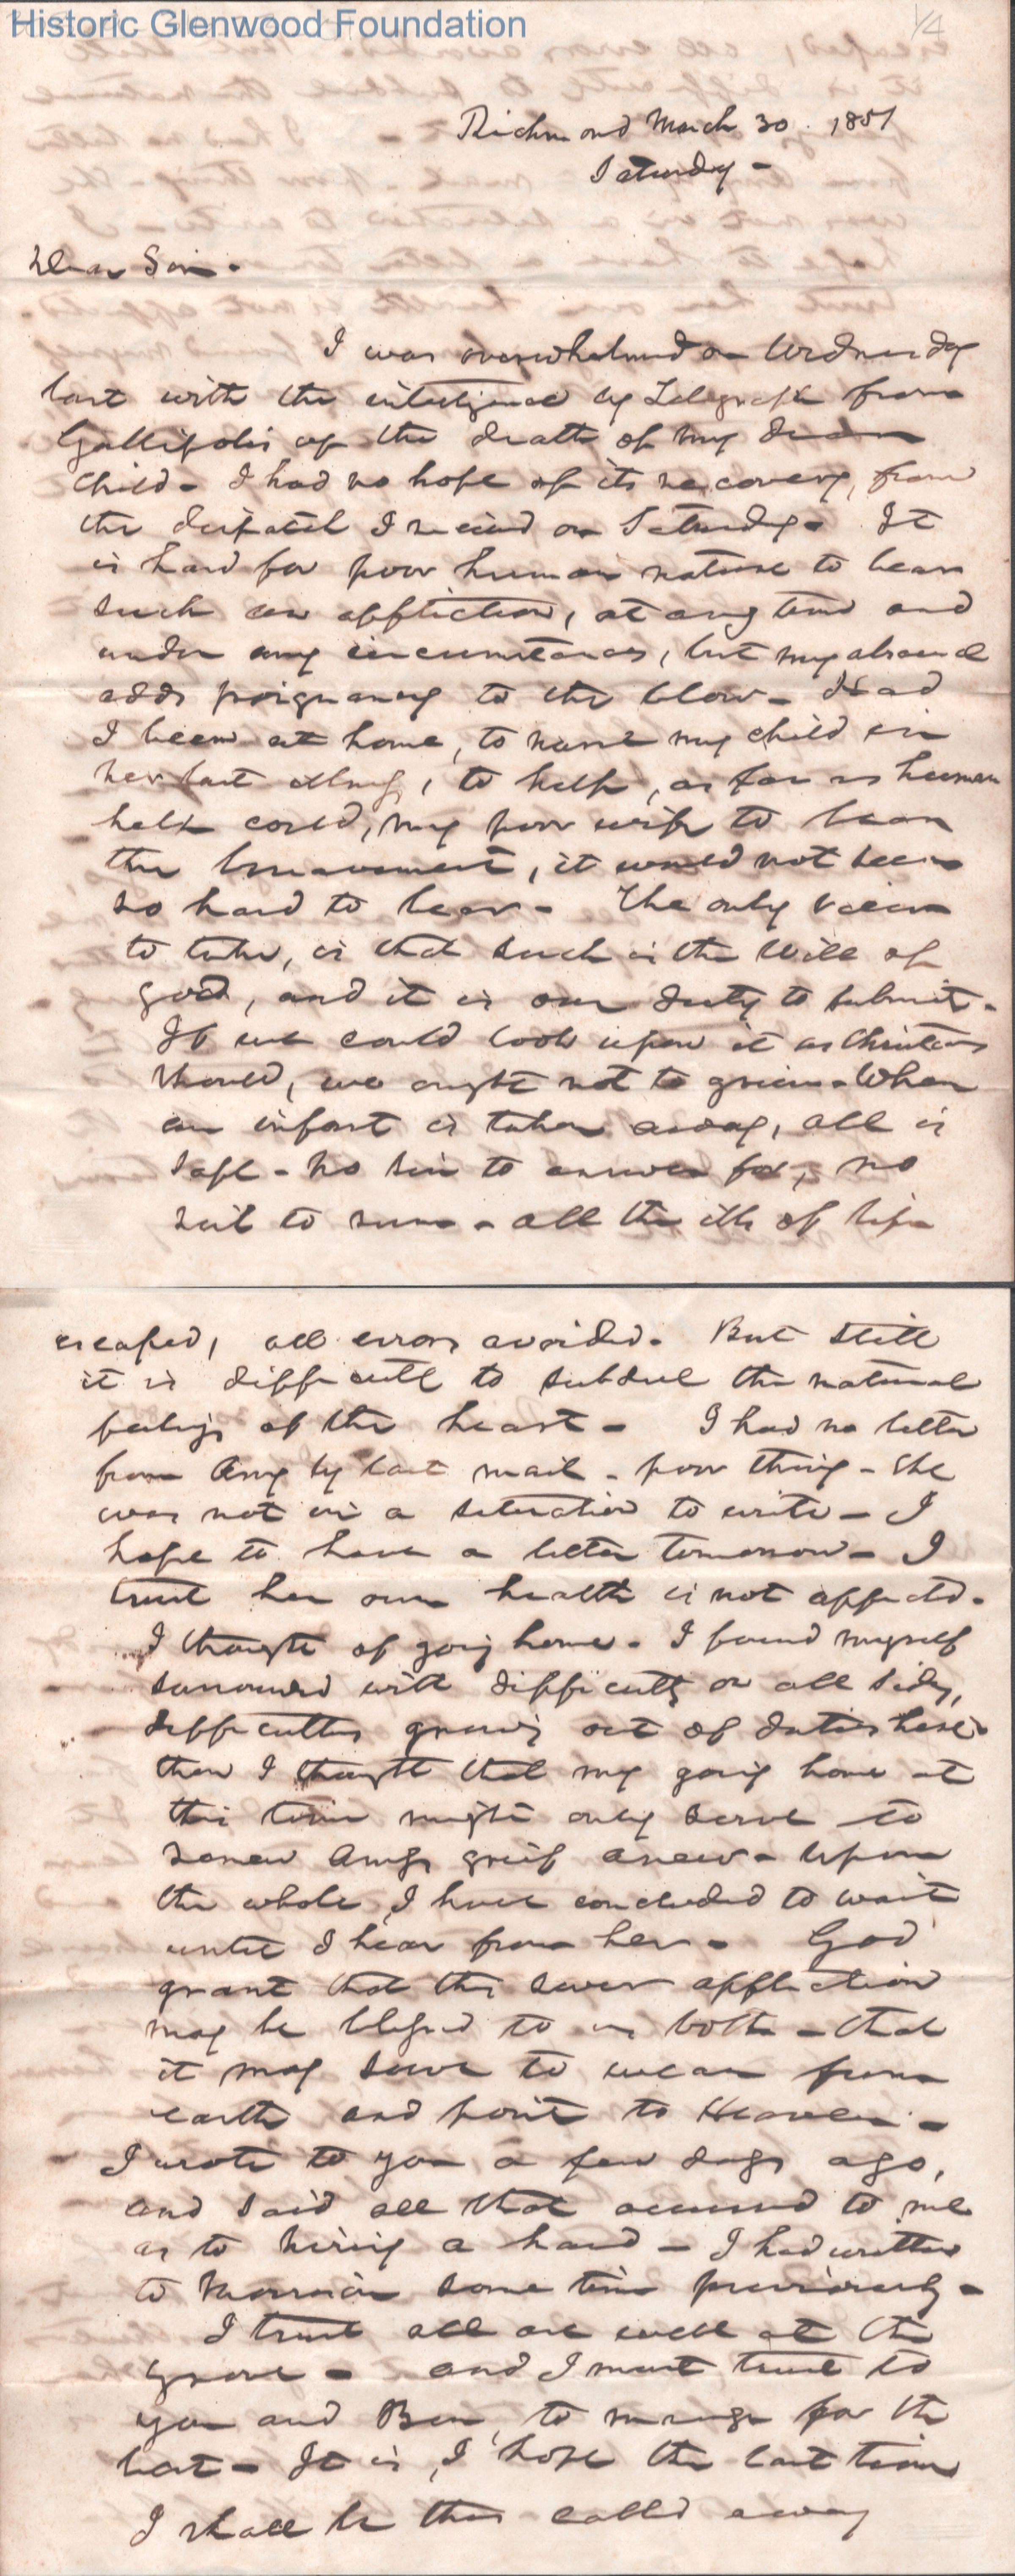 Historic Glenwood Foundation
1/4
Richmond March 30. 1851
Saturday -
Dear Sir.
I was overwhelmed on Wednesday
last with the intelligence by Telegraph from
Gallipolis of the death of my dear
child - I had no hope of its recovery, from
the dispatch I received on Saturday. It
is hard for poor human nature to bear
such an affliction, at any time and
under any circumstances, but my absence
adds poignancy to the blow - Had
I been at home, to nurse my child in
her last illness, to help, as far as human
help could, my poor wife to bear
the bereavement, it would not seem
so hard to bear - The only view
to take, is that such is the Will of
God, and it is our duty to submit.
If we could look upon it as Christians
should, we ought not to grieve. When
an infant is taken away, all is
safe - no sin to answer for, no
to - all the ills of life
escaped, all errors avoided. But still
it is difficult to subdue the natural
feelings of the heart - I had no letter
from Amy by last mail - poor thing - she
was not in a situation to write - I
hope to have a letter tomorrow - I
trust her own health is not affected.
I thought of going home. I found myself
surrounded with difficulty on all sides,
difficulties growing out of duties here -
then I thought that my going home at
this time might only serve to
renew Amys grief anew - Upon
the whole, I have concluded to wait
until I hear from her - God
grant that this severe affliction
may be blessed to us both - that
it may serve to wean from
earth and point to Heaven -
I wrote to you a few days ago,
and said all that occurred to me
as to hiring a hand - I had written
to some time previously -
I trust all are well at the
Grove - and I must trust to
you and Ben, to manage for the
best - It is, I hope the last time
I shall be thus called away